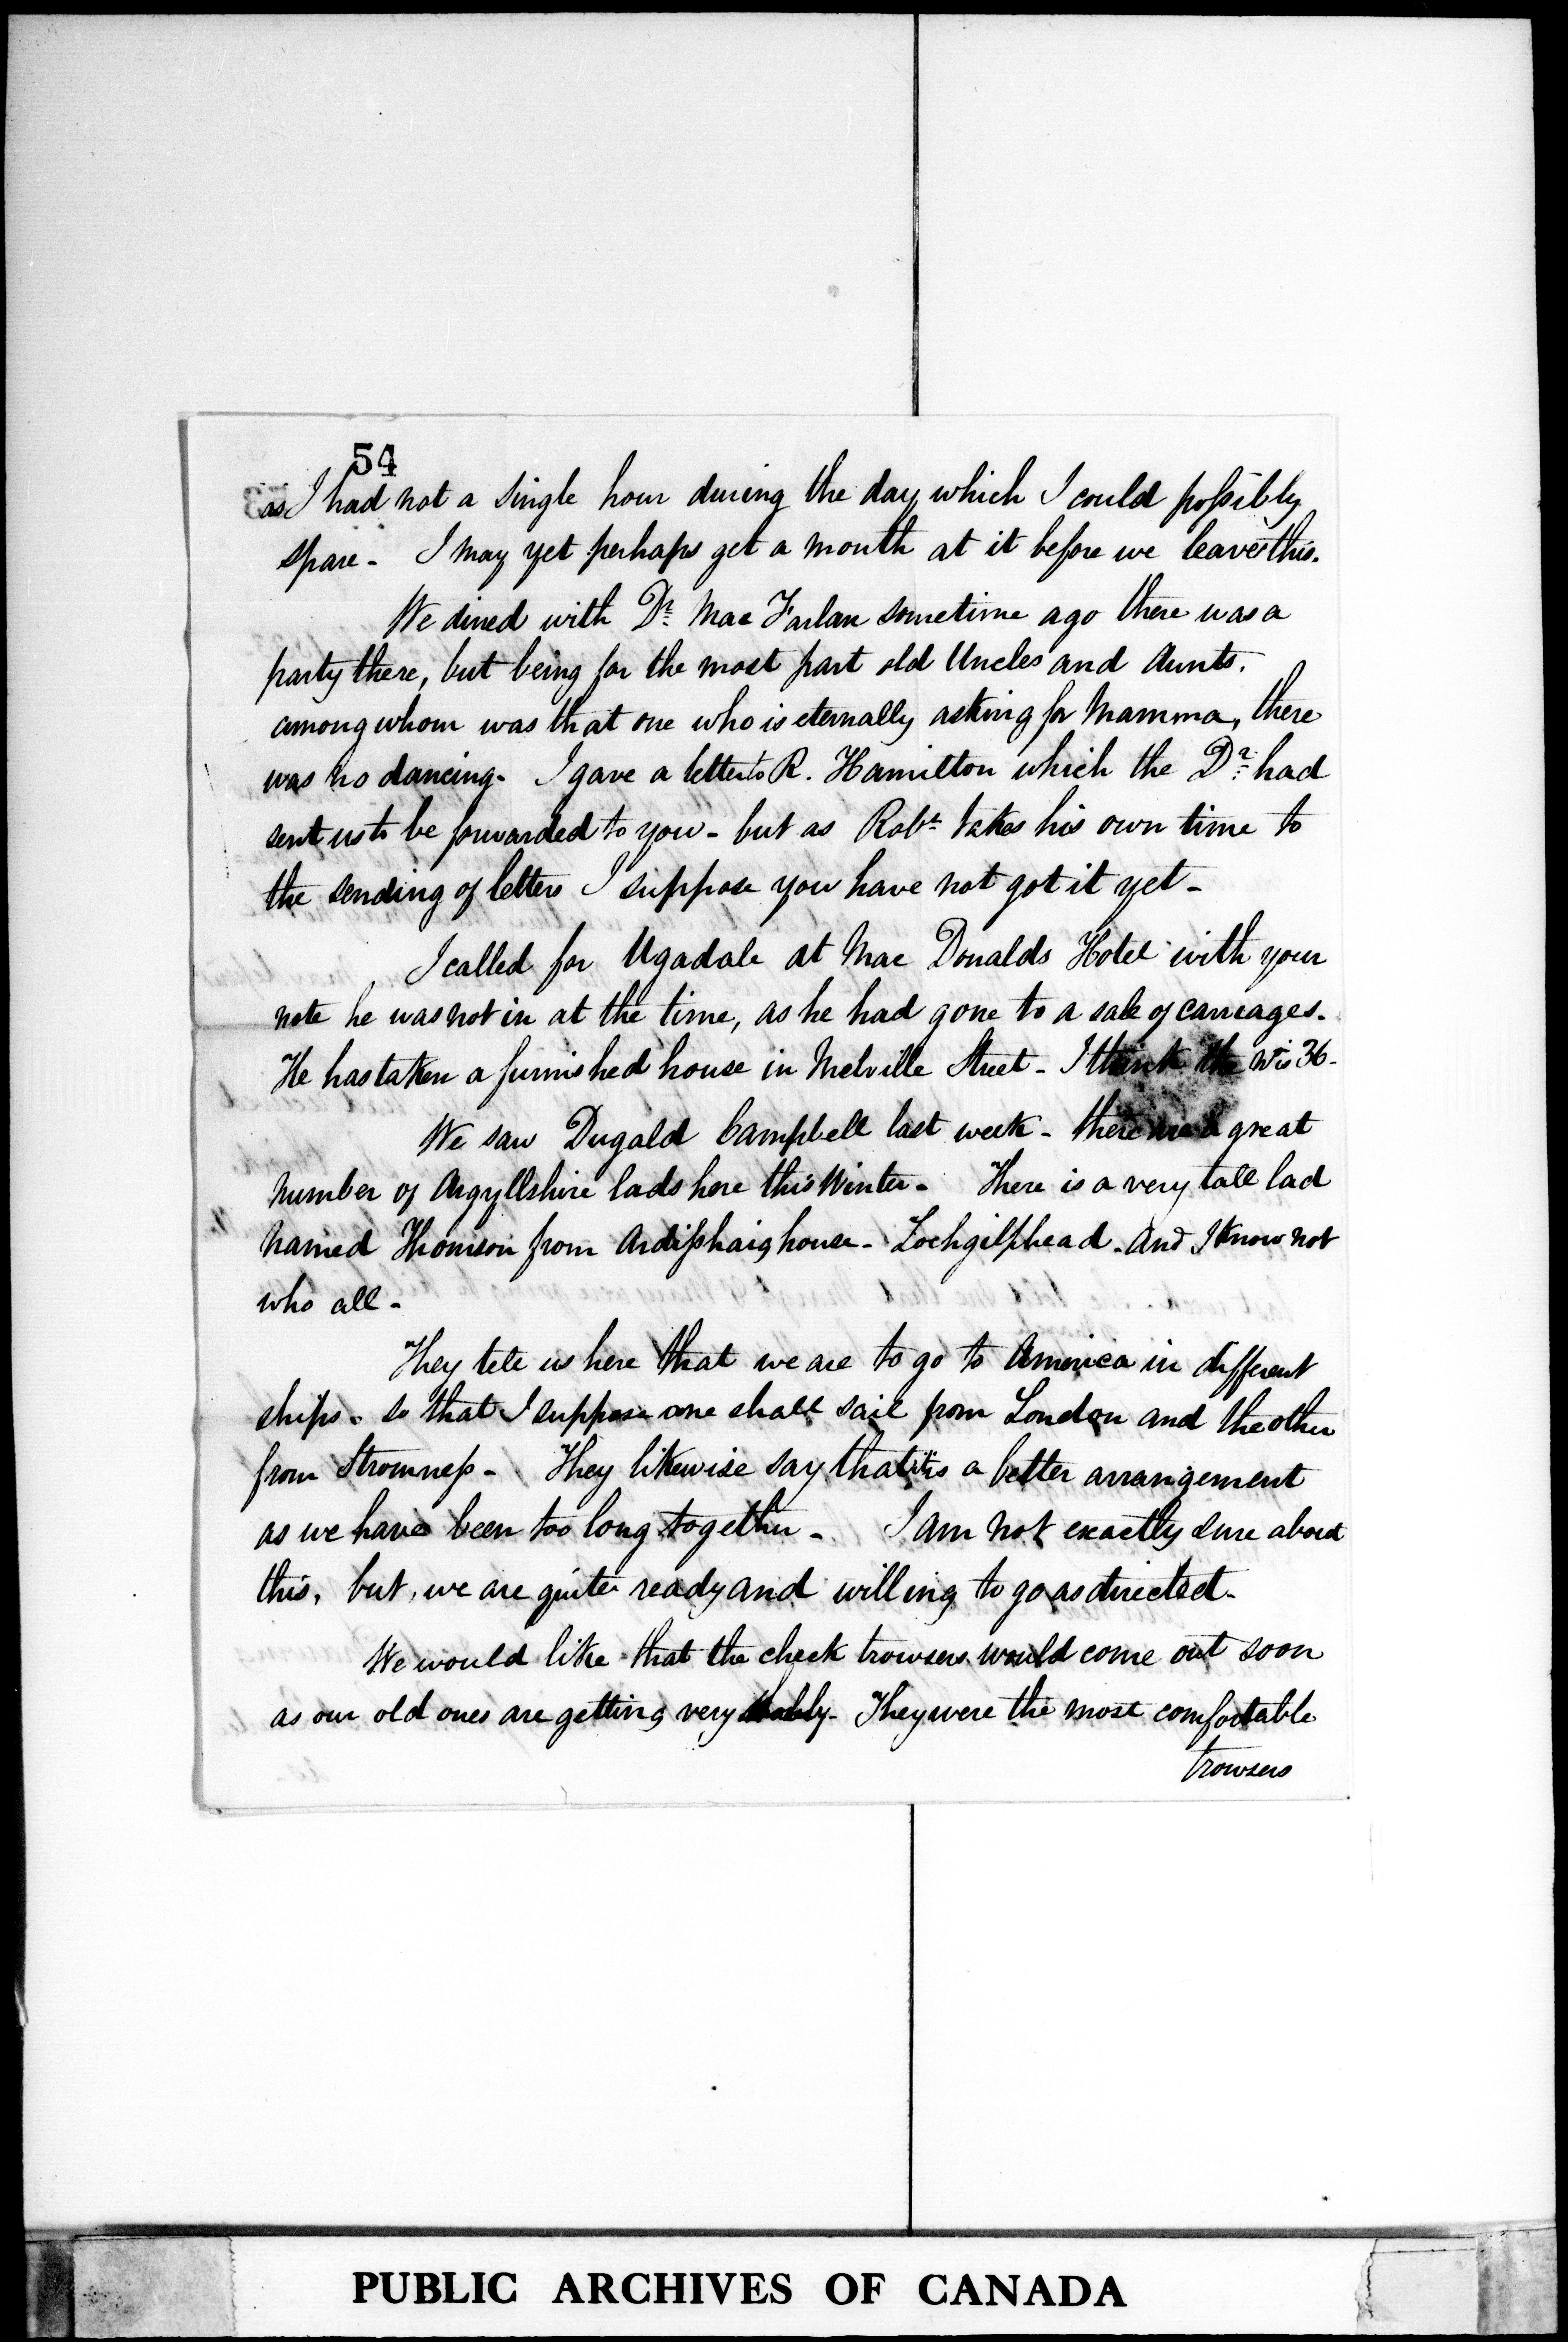 54
as I had not a single hour during the day, which I could possibly
spare - I may yet perhaps get a month at it before we leave this.
We dined with Dr. Mac Farlan sometime ago there was a
party there, but being for the most part old Uncles and Aunts.
among whom was that one who is eternally asking for Mamma, there
was no dancing - I gave a letter to R. Hamilton which the Dr. had
sent us to be forwarded to you - but as Robt. takes his own time to
the sending of letters I suppose you have not got it yet -
I called for Ugadale at Mac Donalds Hotel with your
note he was not in at the time, as he had gone to a sale of carriages.
He has taken a furnished house in Melville Street - I think the No is 36 -
We saw Dugald Campbell last week - there are a great
number of Argyllshire lads here this Winter - There is a very tall lad
named Thomson from Ardishaig house - Lochgilphead - And I know not
who all -
They tell us here that we are to go to America in different
ships - so that I suppose one shall sail from London and the other
from Stromness - They likewise say that it is a better arrangement
as we have been too long together - I am not exactly sure about
this, but, we are quite ready and willing to go as directed -
We would like that the check trowsers would come out soon
as our old ones are getting very shably - They were the most comfortable
trowsers
PUBLIC ARCHIVES OF CANADA